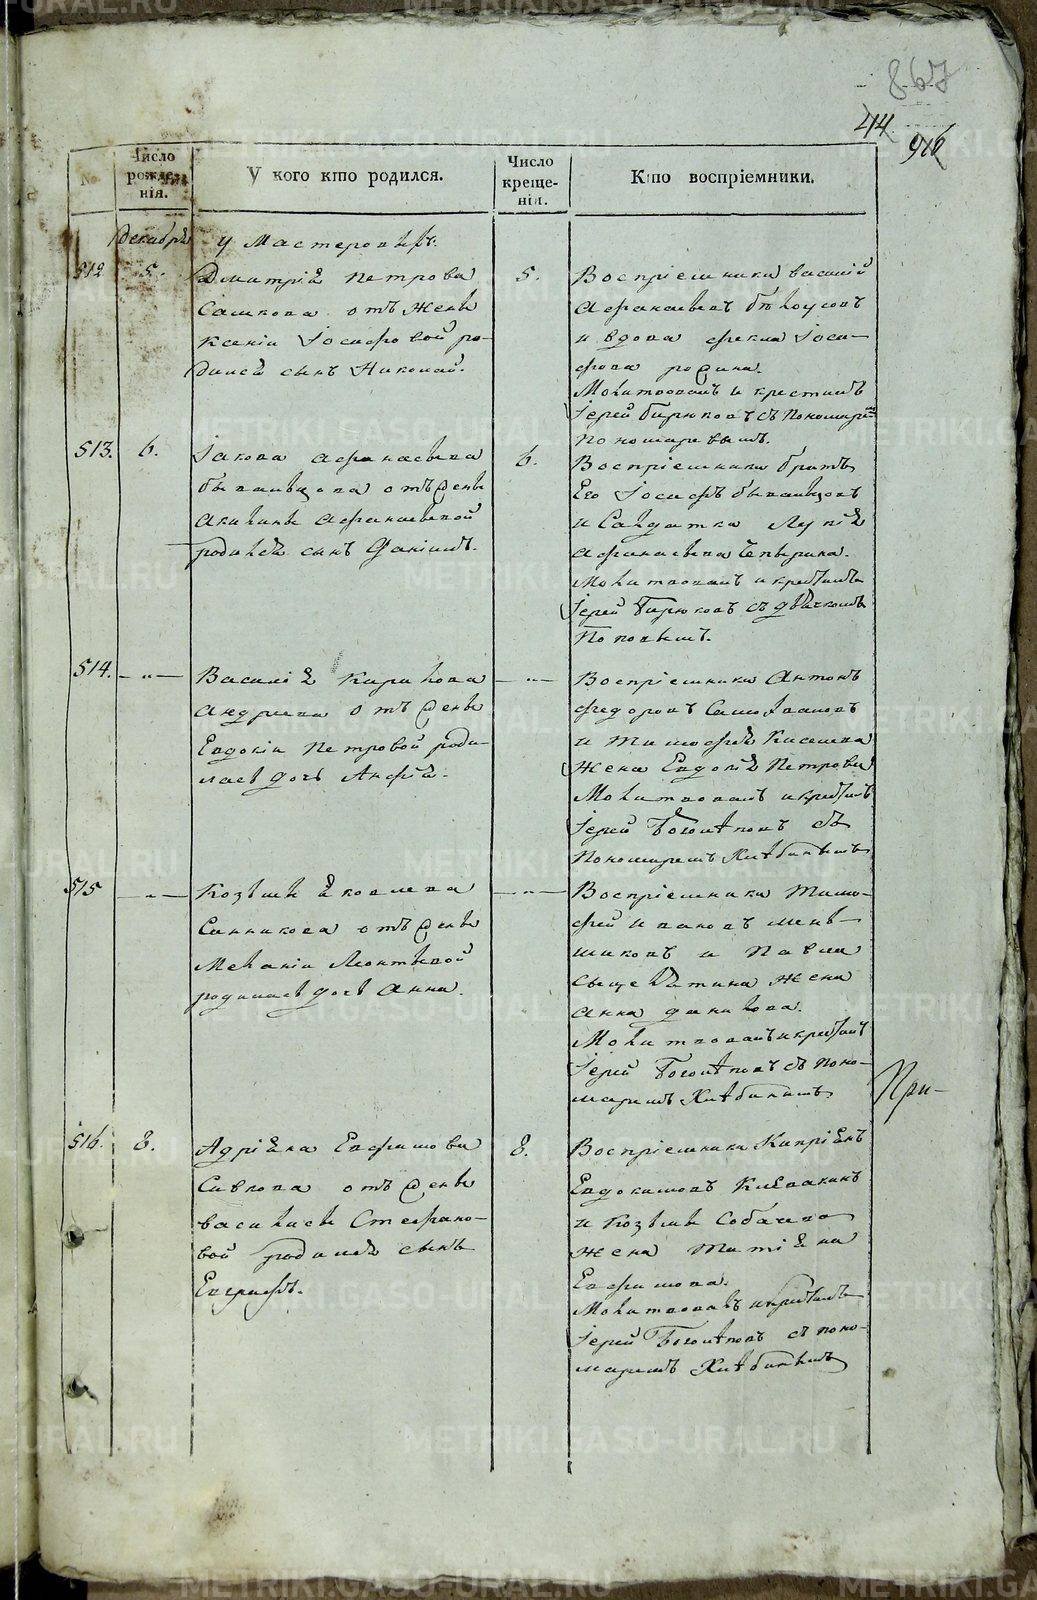 867
414
916
№
Число рожде-нія.
У кого кто родился.
Число креще-нія.
Кто воспріемники.
Декабря
У Мастеровыхъ.
512
5.
Дмитрія Петрова
Сашкова отъ жены
Ксеніи Іосафовой ро-
дился сынъ Николай.
5.
Воспріемники Василій
Афанасьевъ Бѣлоусовъ
и вдова Фекла Іоса-
фова
Молитвовалъ и крестилъ
Іерей Бирюковъ съ Пономаремъ
Пономаревымъ.
513.
6.
Іакова Афанасьева
отъ жены
Акилины Афанасьевой
родился сынъ Даніилъ.
6.
Воспріемники братъ
Его Іосафъ
и Салдатка Лукія
Афанасьева
Молитвовалъ и крестилъ
Іерей Бирюковъ съ дьячкомъ
Поповымъ.
514.
— „ —
Василія Карилова
Андреева отъ жены
Евдокіи Петровой роди-
лась дочь Анфія.
— „ —
Воспріемники Антонъ
Федоровъ Самойловъ
и Тимофея Киселева
жена Евдокія Петрова
Молитвовалъ и крестилъ
Іерей Боголѣповъ съ
Пономаремъ Хлѣбинымъ
515
— „ —
Козьмы Яковлева
Санникова отъ жены
Меланіи Леонтьевой
родилась дочь Анна.
— „ —
Воспріемники Тимо-
фей Ивановъ Мень-
шиковъ и Павла
жена
Анна Данилова.
Молитвовалъ и крестилъ
Іерей Боголѣповъ съ Поно-
маремъ Хлѣбинымъ
При-
516.
8.
Адріяна Евфимова
Сивкова отъ жены
Василисы Стефано-
вой родился сынъ
Евграфъ.
8.
Воспріемники Кипріянъ
Евдокимовъ
и Козьмы
жена Татіяна
Евфимова.
Молитвовалъ и крестилъ
Іерей Боголѣповъ съ поно-
маремъ Хлѣбинымъ
METRIKI.GASO-URAL.RU